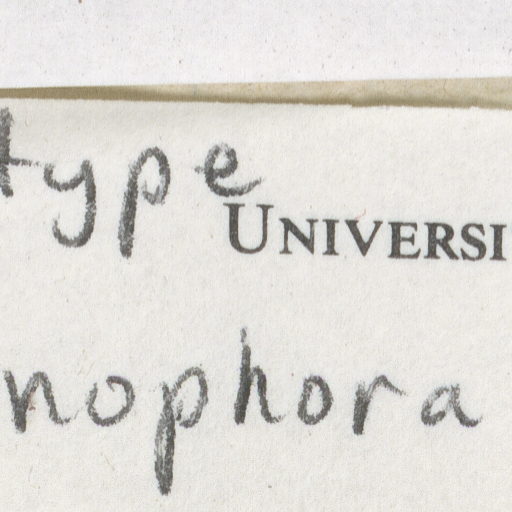 type
UNIVERSI
nophora